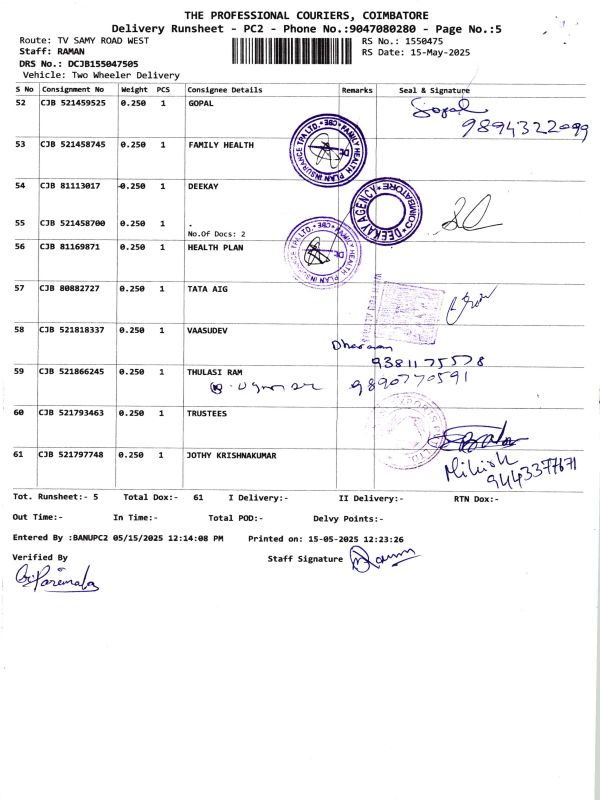 THE PROFESSIONAL COURIERS, COIMBATORE
Delivery Runsheet - PC2 - Phone No.:9047080280 - Page No.:5
Route: TV SAMY ROAD WEST
RS No.: 1550475
Staff: RAMAN
RS Date: 15-May-2025
DRS No.: DCJB155047505
Vehicle: Two Wheeler Delivery
S No Consignment No Weight PCS Consignee Details Remarks Seal & Signature
52 CJB 521459525 0.250 1 GOPAL Gopal
9894322099
53 CJB 521458745 0.250 1 FAMILY HEALTH
FAMILY HEALTH PLAN INSURANCE TPA LTD. CBE
54 CJB 81113017 0.250 1 DEEKAY
DEEKAY AGENCY COIMBATORE
55 CJB 521458700 0.250 1 .
No.Of Docs: 2
56 CJB 81169871 0.250 1 HEALTH PLAN
FAMILY HEALTH PLAN INSURANCE TPA LTD. CBE
57 CJB 80882727 0.250 1 TATA AIG
58 CJB 521818337 0.250 1 VAASUDEV
9381175578
59 CJB 521866245 0.250 1 THULASI RAM
9890770591
60 CJB 521793463 0.250 1 TRUSTEES
61 CJB 521797748 0.250 1 JOTHY KRISHNAKUMAR
Tot. Runsheet:- 5 Total Dox:- 61 I Delivery:- II Delivery:- RTN Dox:-
Out Time:- In Time:- Total POD:- Delvy Points:-
Entered By :BANUPC2 05/15/2025 12:14:08 PM Printed on: 15-05-2025 12:23:26
Verified By
Staff Signature